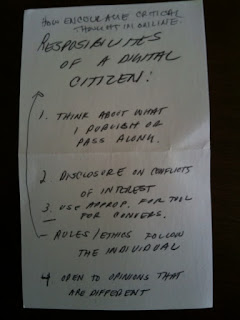 HOW ENCOURAGE CRITICAL
THOUGHT IN ONLINE.
RESPOSIBILITES
OF A DIGITAL
CITIZEN:
1. THINK ABOUT WHAT
I PUBLISH OR
PASS ALONG.
2. DISCLOSURE ON CONFLICTS
OF INTEREST
3. USE APPROP. FOR TOOL
FOR CONVERS.
- RULES/ETHICS FOLLOW
THE INDIVIDUAL
4 OPEN TO OPINIONS THAT
ARE DIFFERENT